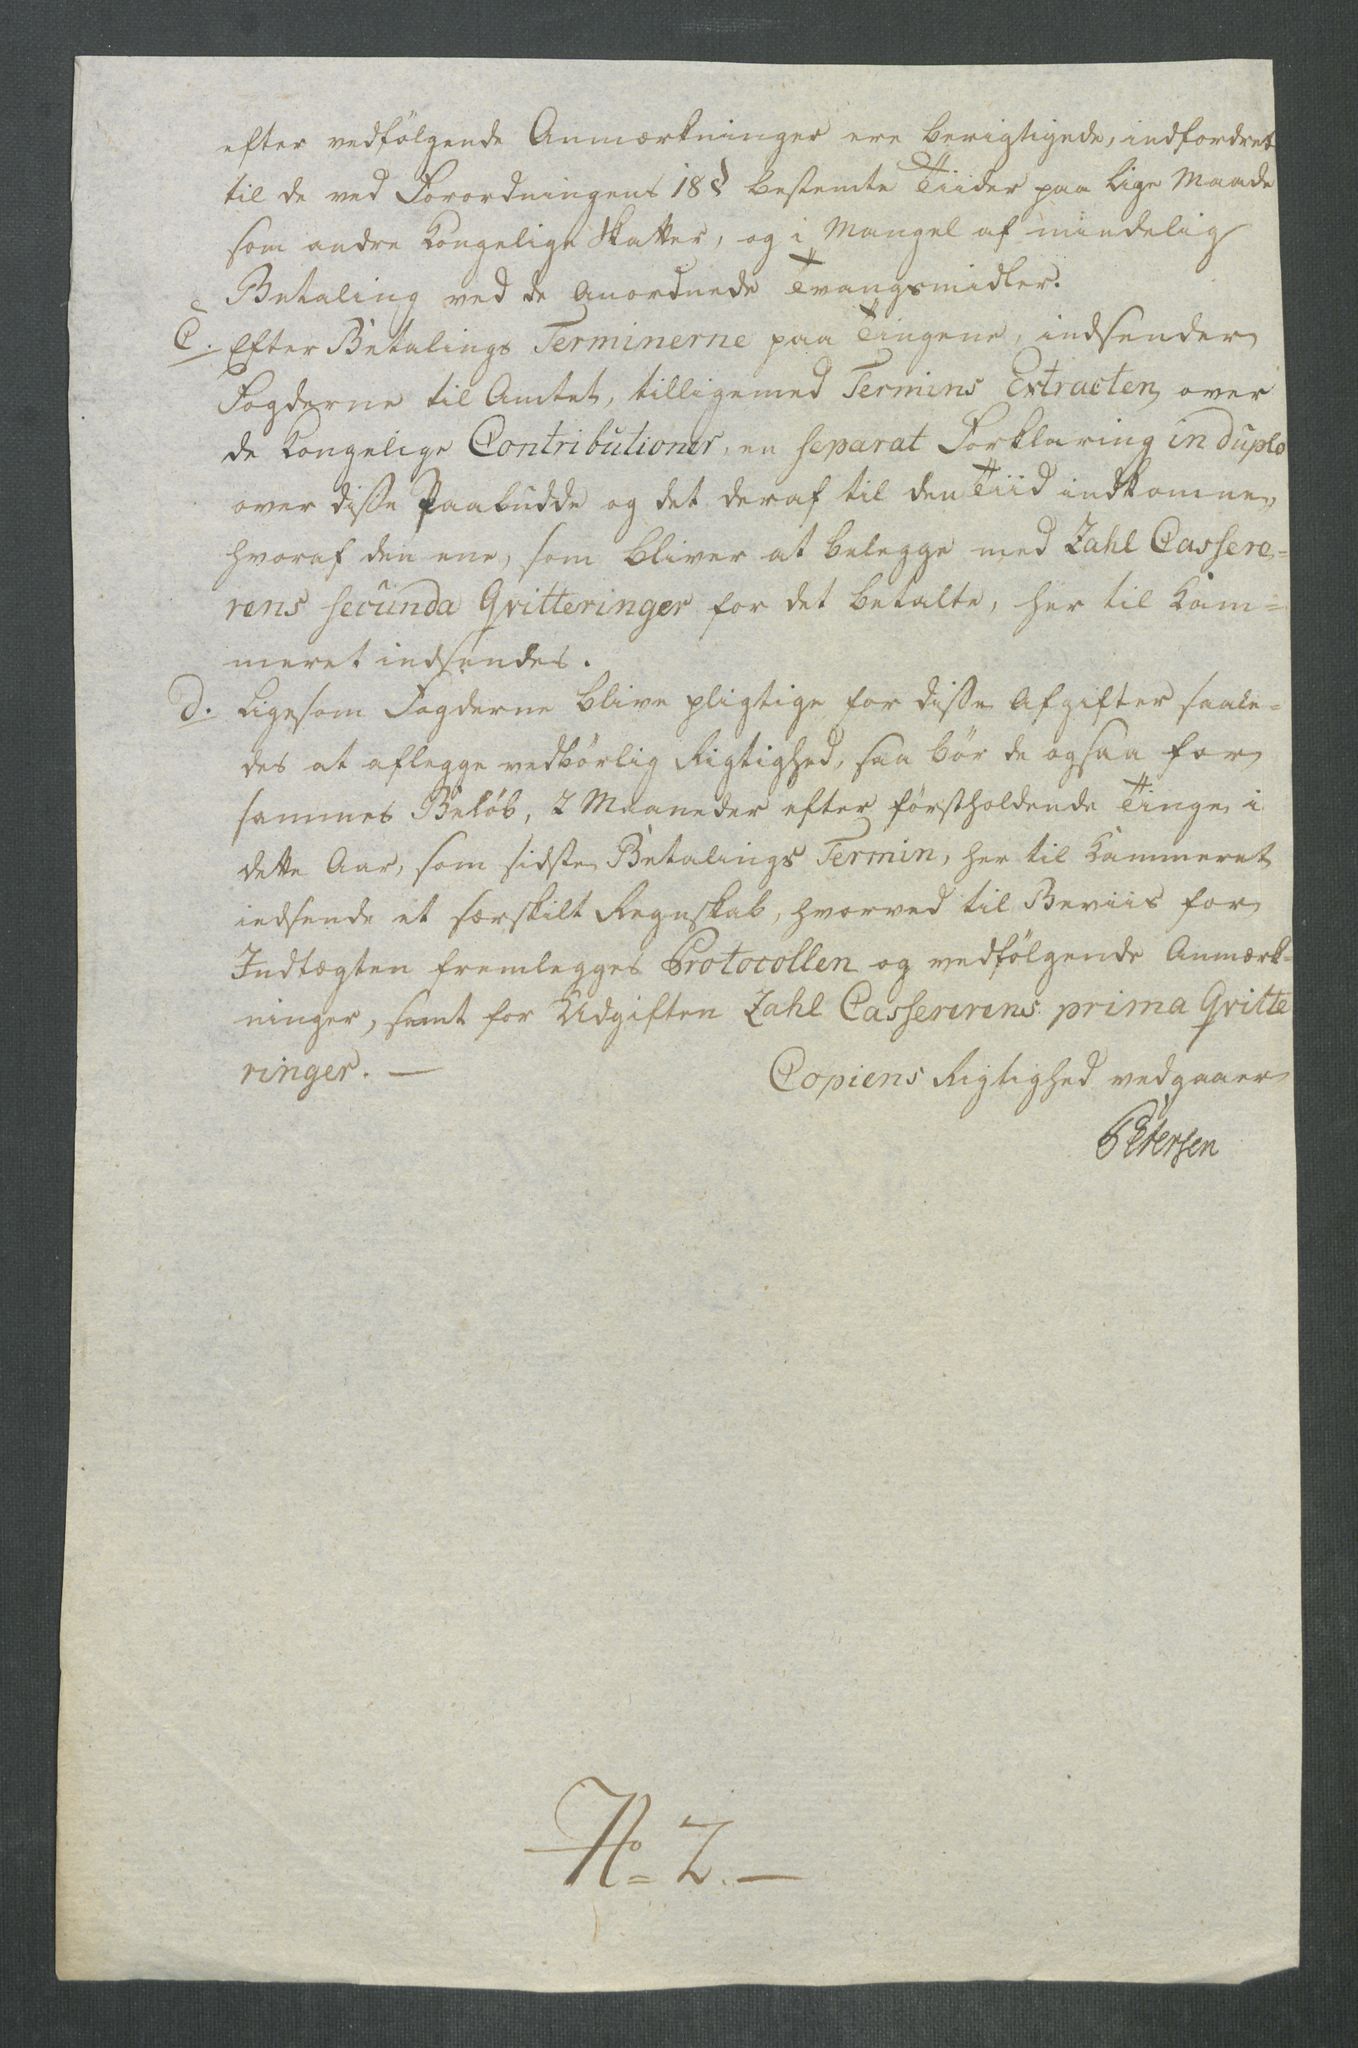 efter vedfölgende Anmærkninger ere berigtigede, indfordret
til de ved Forordningens 18 § bestemte Tiider paa lige Maade
som andre Kongelige Skatter, og i Mangel af mindelig
Betaling ved de anordnede Tvangsmidler.
C. Efter Betalings Terminerne paa Tingene, indsender
Fogderne til Amtet, tilligemed Termins Extracten over
de Kongelige Contributioner, en separat Forklaring in duplo
over disse Paabudde og det deraf til den Tiid indkomne,
hvoraf den ene, som bliver at belegge med Zahl Cassere-
rens secunda Qvitteringer for det betalte, her til Kam-
meret indsendes.
d. Ligesom Fogderne blive pligtige for disse Afgifter saale-
des at aflegge vedbörlig Rigtighed, saa bör de ogsaa for
sammes Belöb, 2 Maaneder efter förstholdende Tinge i
dette Aar, som sidste Betalings Termin, her til Kammeret
indsende et særskilt Regnskab, hvorved til Beviis for
Indtægten fremlegges Protocollen og vedfölgende Anmærk-
ninger, samt for Udgiften Zahl Cassererens prima Qvitte
ringer. —
Copiens Rigtighed vedgaaer
Petersen
No 2. —